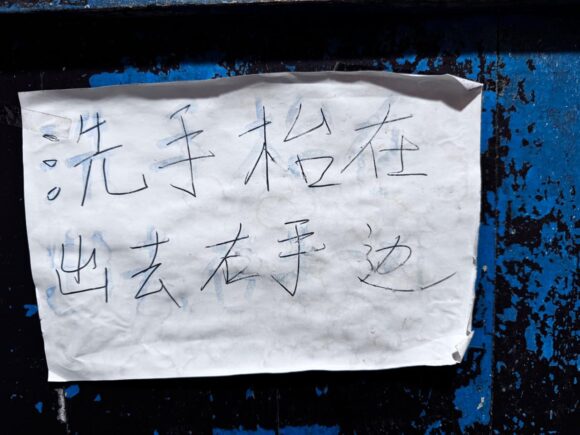 洗手枱在
出去右手边